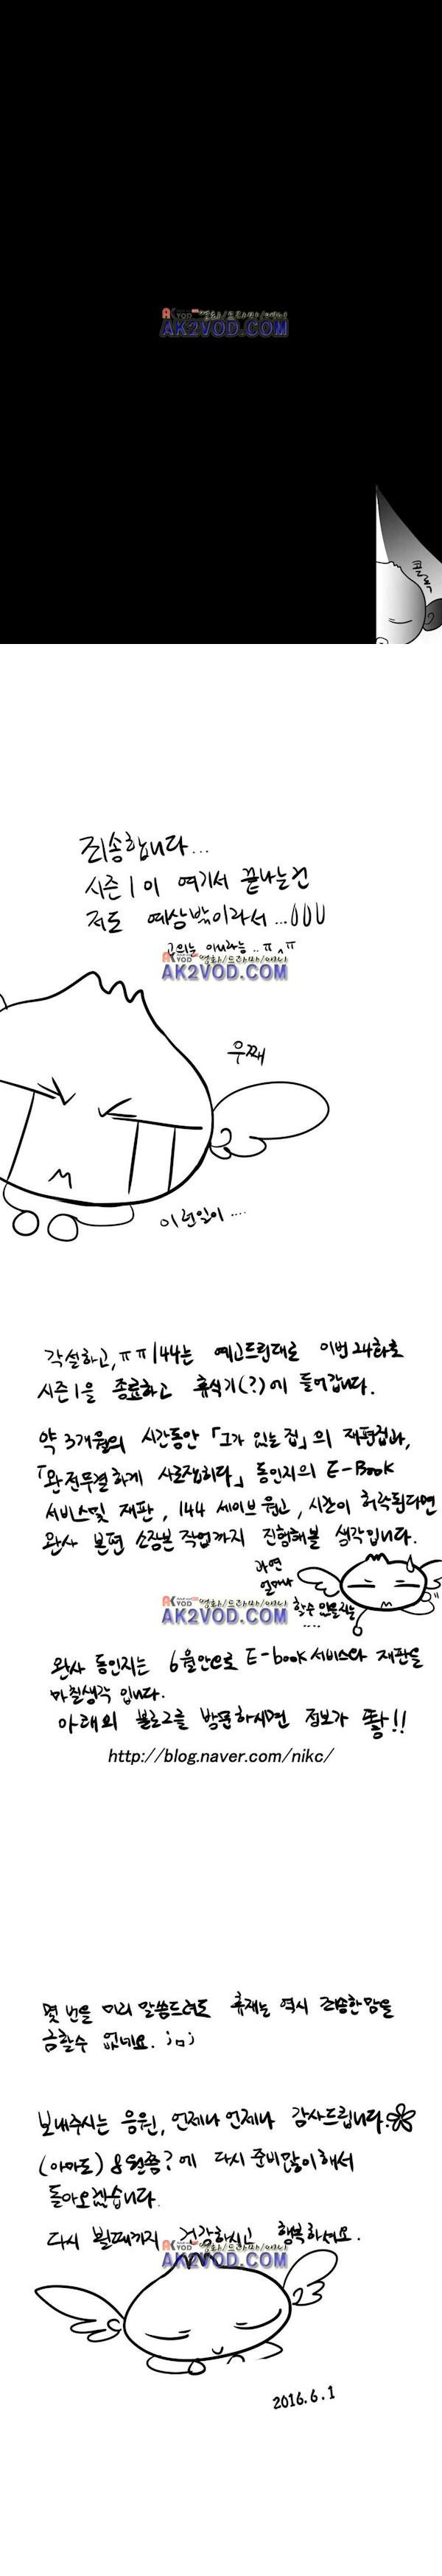 AK VOD 영화/드라마/애니
AK2VOD.COM
죄송합니다...
시즌 1 이 여기서 끝나는건
저도 예상밖이라서...
고의는 아니라능..ㅠ^ㅠ
AK VOD 영화/드라마/애니
AK2VOD.COM
우째
이런일이....
각설하고, ㅠㅠ 144는 예고드린대로 이번 24화로
시즌 1을 종료하고 휴식기(?)에 들어갑니다.
약 3개월의 시간동안 「그가 있는 집」의 재편집과,
「완전무결하게 사로잡히다」 동인지의 E-Book
서비스및 재판, 144 세이브 원고, 시간이 허락된다면
완사 본편 소장본 작업까지 진행해볼 생각입니다.
과연
얼마나
할수 있을지는
....
AK VOD 영화/드라마/애니
AK2VOD.COM
완사 동인지는 6월안으로 E-book 서비스와 재판을
마칠생각 입니다.
아래의 블로그를 방문하시면 정보가 뙇!!
http://blog.naver.com/nikc/
몇 번을 미리 말씀드려도 휴재는 역시 죄송한맘을
금할수 없네요. ;ㅁ;
보내주시는 응원, 언제나 언제나 감사드립니다.
(아마도) 8월쯤? 에 다시 준비많이해서
돌아오겠습니다.
다시 뵐때까지 건강하시고 행복하세요.
AK VOD 영화/드라마/애니
AK2VOD.COM
2016.6.1